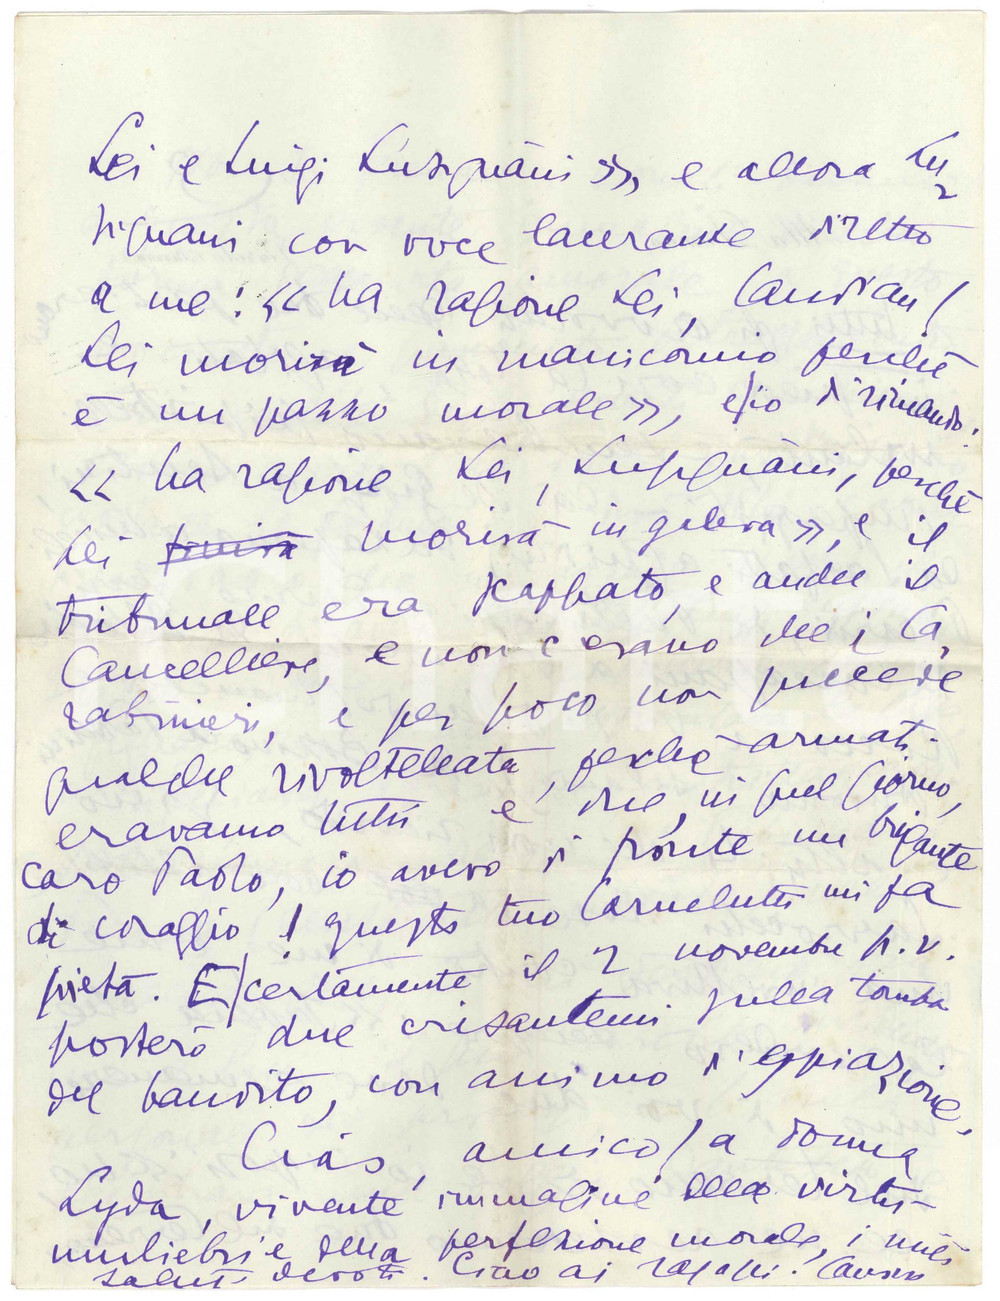 Lei e Luigi Lusignani», e allora Lu=
signani con voce lacerante diretto
a me: «ha ragione Lei, Candian!
Lei morirà in manicomio perchè
è un pazzo morale», e io di rimando:
«ha ragione Lei, Lusignani, perchè
Lei finirà morirà in galera», e il
tribunale era scappato, e anche il
Cancelliere, e non c'erano dei Ca,
rabinieri, e per poco non succede
qualche rivoltellata, perchè armati
eravamo tutti e due, in quel giorno,
caro Paolo, io avevo di fronte un brigante
di coraggio! questo tuo Carnelutti mi fa
pietà. E certamente il 2 novembre p.v.
porterò due crisantemi sulla tomba
del bandito, con animo d'espiazione.
Ciao, amico! a donna
Lyda, vivente immagine della virtù
muliebri e della perfezione morale, i miei
saluti devoti. Ciao ai ragazzi.
Charta